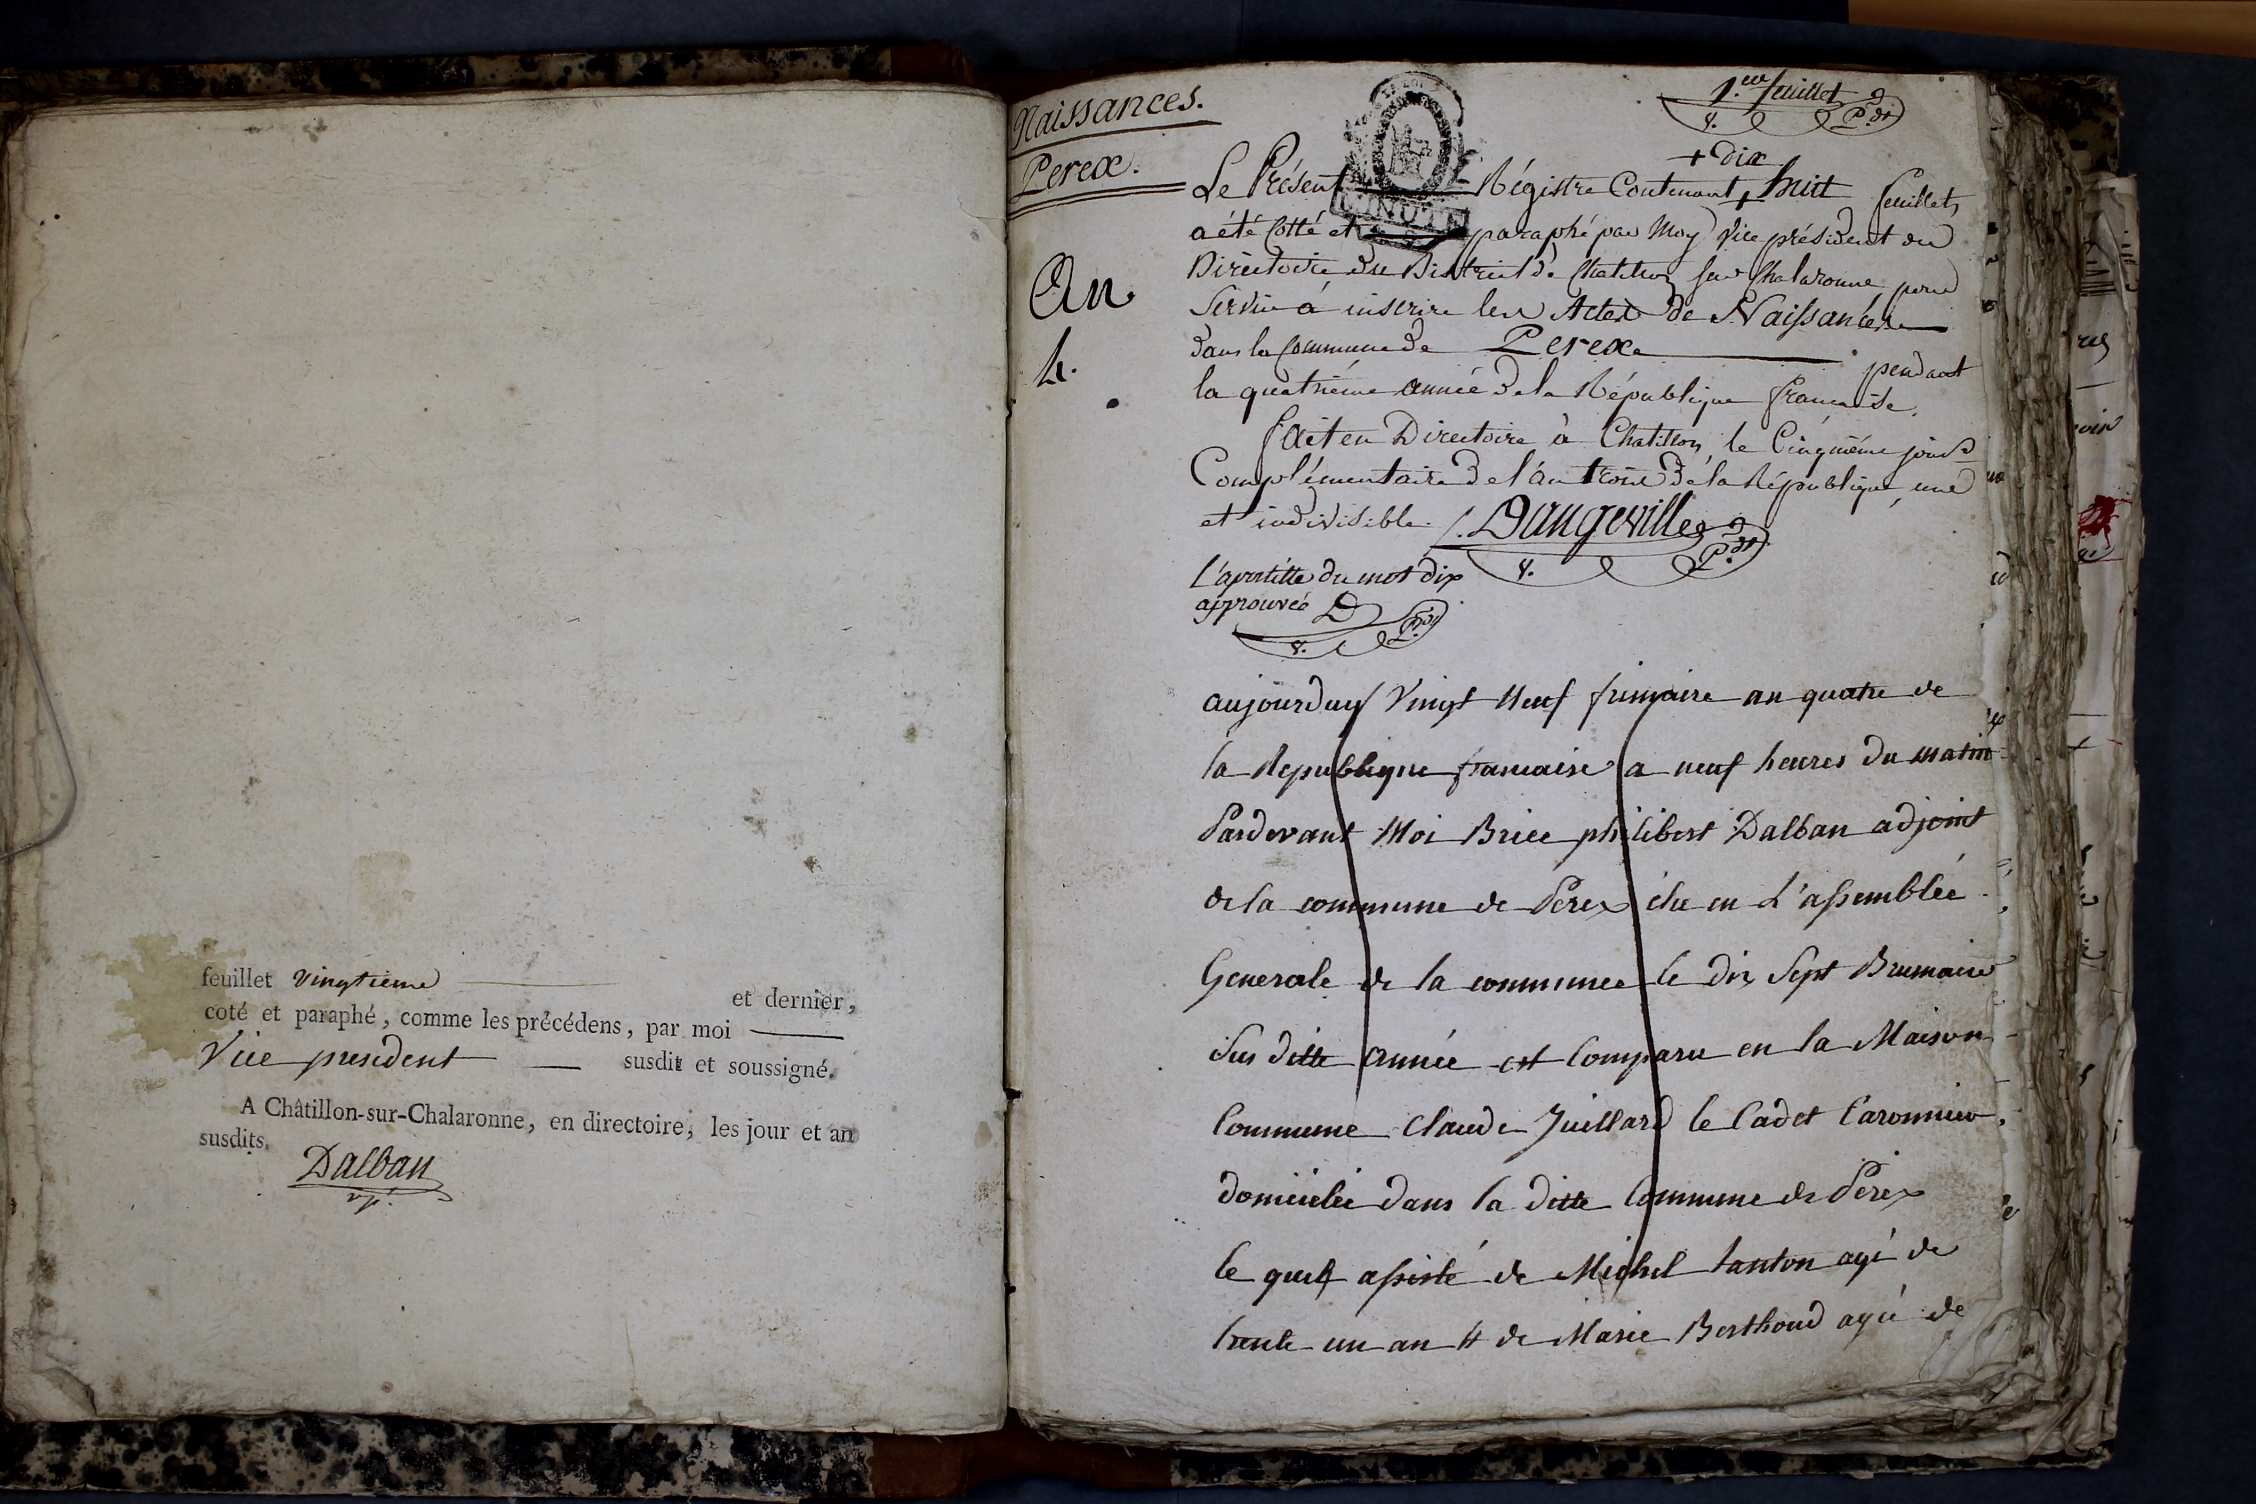 feuillet vingtieme
et dernier,
coté et paraphé, comme les précédens, par moi
Vice president susdit et soussigné.
A Châtillon-sur-Chalaronne, en directoire, les jour et an
susdits.
Dalban
vp.
Naissances.
Perex.
An
4.
1.er feuillet
P.dt
+ Dix
Le Présent Régistre Contenant + huit feuillets
a été Cotté et paraphé par Moy Vice président du
Directoire du District de Chatillon sur Chalaronne pour
Servir à inscrire les Actes de Naissances
dans la Commune de Perex pendant
la quatrième année de la République française.
fait en Directoire à Chatillon, le Cinquième jour
Complémentaire de l'an trois de la République, une
et indivisible. Dangeville
P.dt
L'apostille du mot dix
approuvée D
P.dt
MINUTE
aujourduy Vingt Neuf frimaire an quatre de
la Republique francaise a neuf heures du matin
Pardevant Moi Brice philibert Dalban adjoint
de la commune de Perex élu en L'assemblée
Generale de la commune le dix Sept Brumaire
Sus ditte année est Comparu en la Maison
Commune Claude Juillard le Cadet
domicilié dans la ditte Commune de Perex
le quel assisté de Michel Tanton agé de
trente un an & de Marie Berthoud agée de